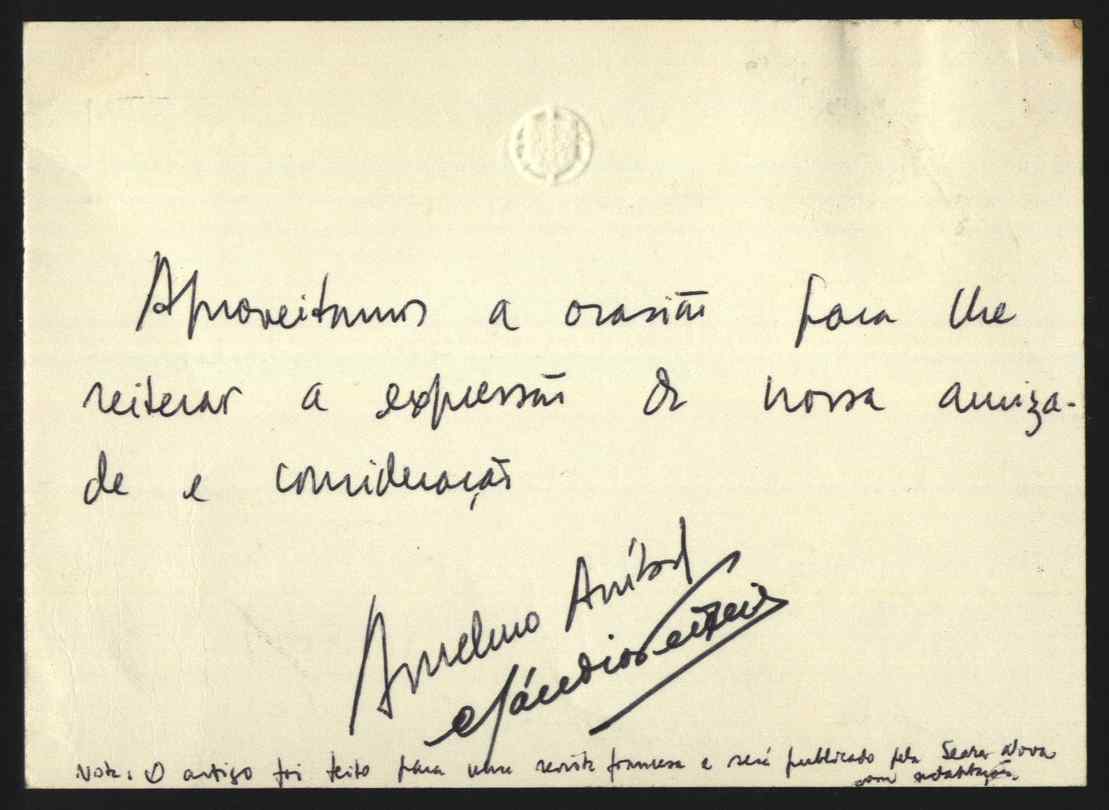 Aproveitamos a ocasião para lhe
reiterar a expressão da nossa amiza-
de e consideração
Anselmo Aníbal
e Cláudio Teixeira
Nota: O artigo foi feito para uma revista francesa e será publicado pela Seara Nova
com adaptações.